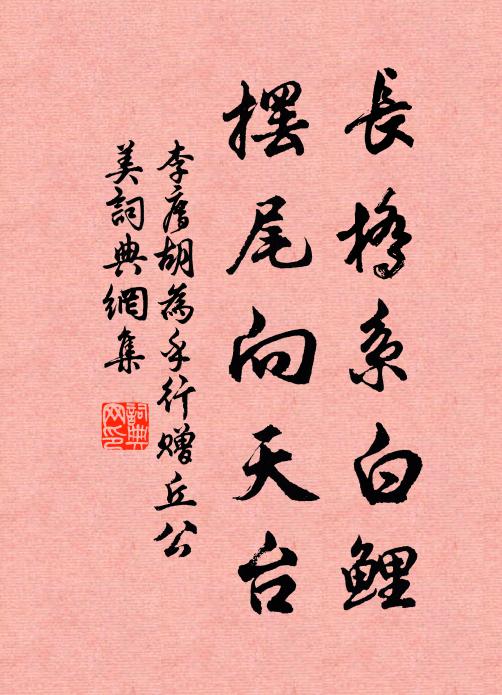 長橋系白鯉
擺尾向天台
李廌胡為乎行贈丘公
美詞典網集
詞典網印